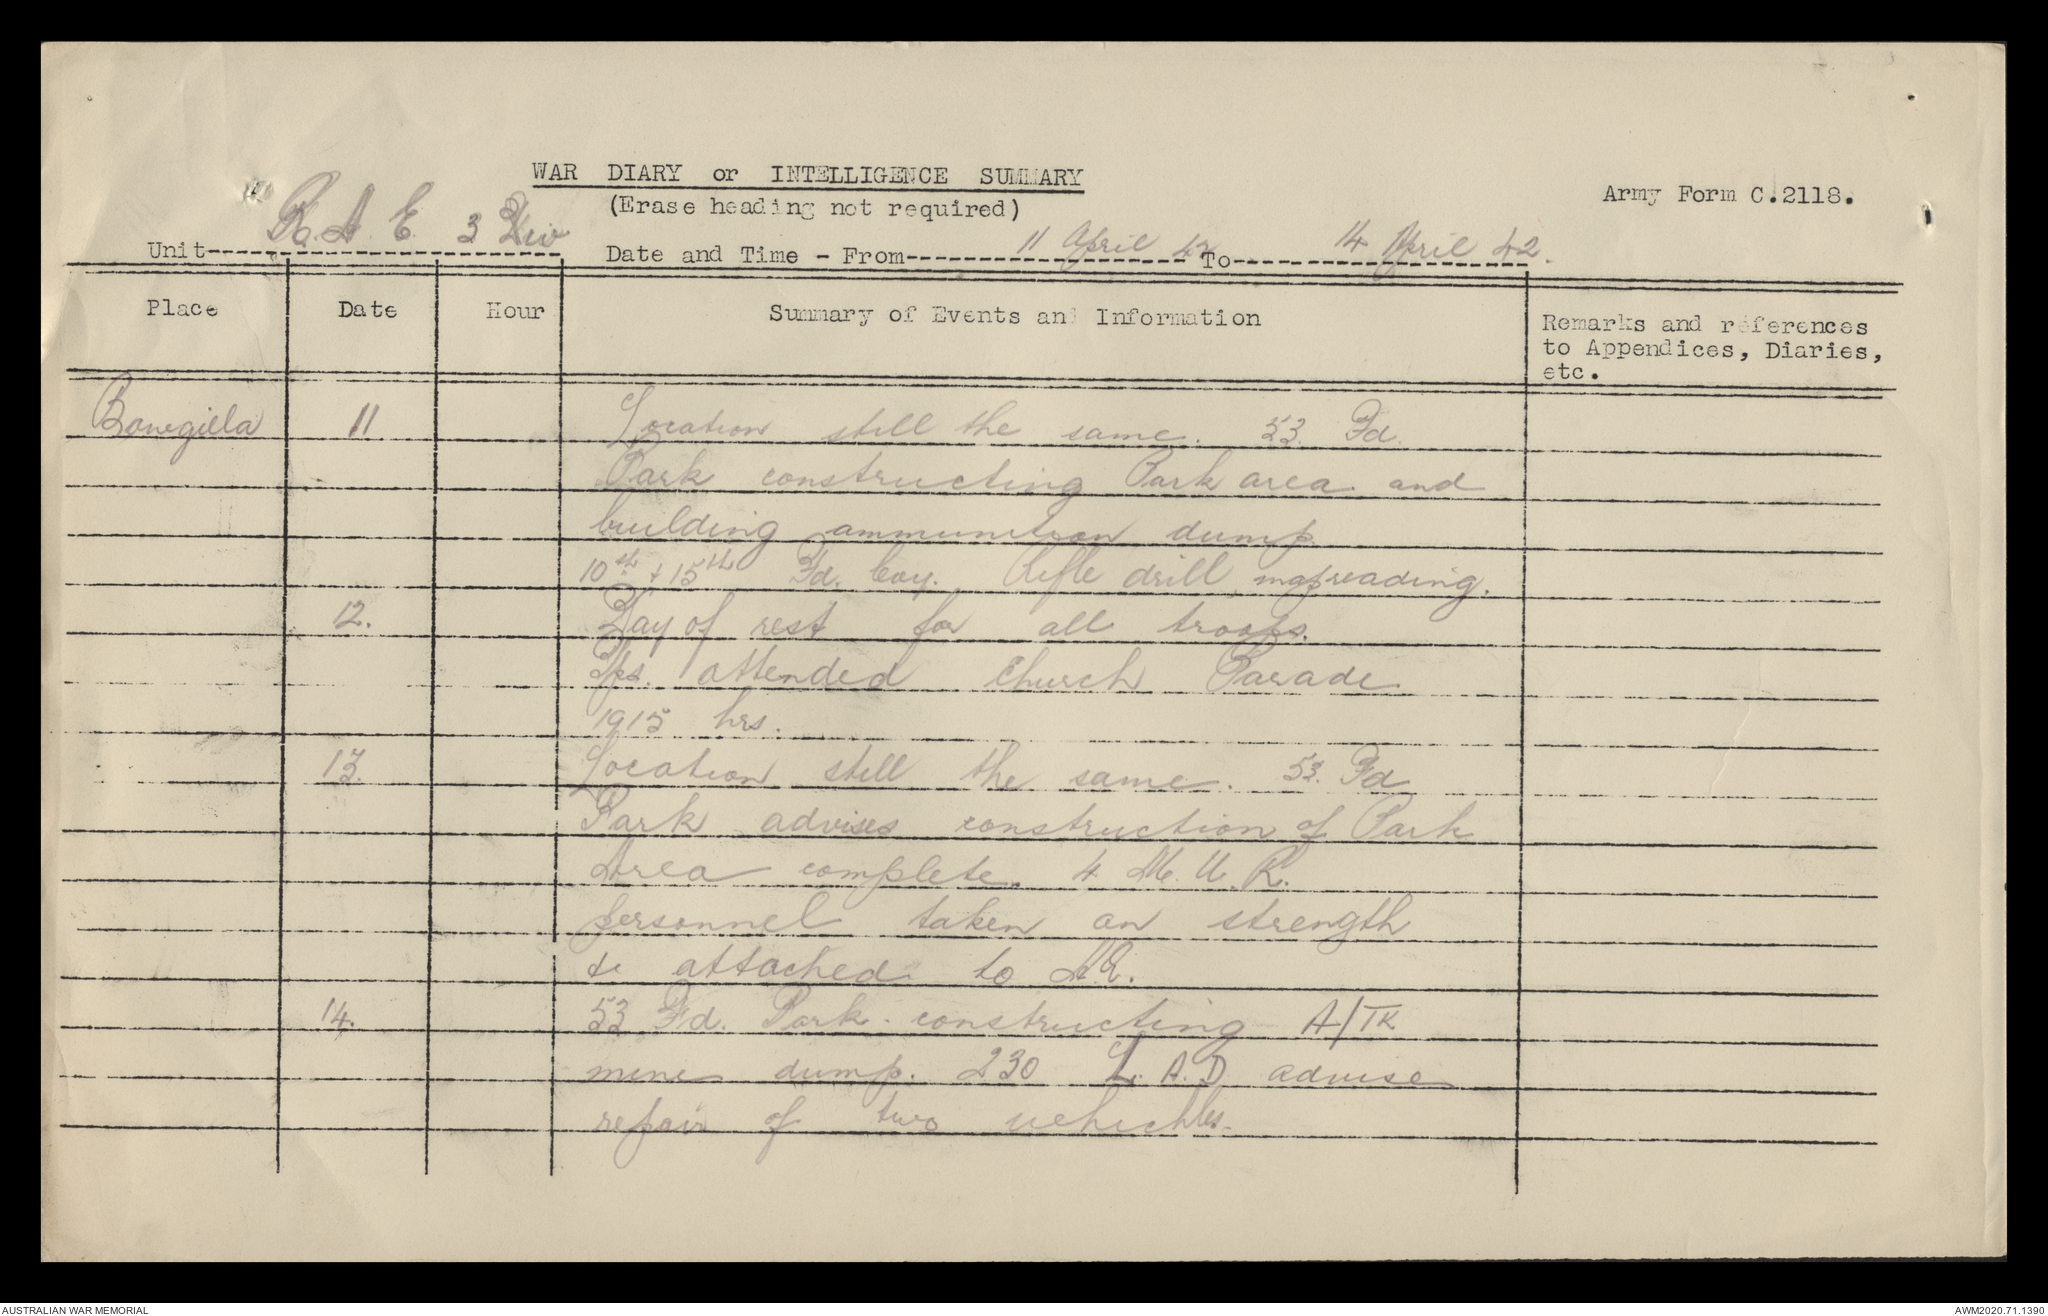 WAR DIARY or INTELLIGENCE SUMMARY
(Erase heading not required)
Army Form C.2118.
Unit R.A.E. 3 Div Date and Time - From 11 April 42 To 14 April 42.
Place Date Hour Summary of Events and Information Remarks and references
to Appendices, Diaries,
etc.
Bonegilla 11 Location still the same. 53 Fd.
Park constructing Park area and
building ammunition dump
10th + 15th Fd. Coy. Rifle drill, mapreading.
12. Day of rest for all troops.
Tps. attended Church Parade
1915 hrs.
13. Location still the same. 53. Fd
Park advises construction of Park
Area complete. 4 M.U.R.
personnel taken on strength
& attached to HQ.
14. 53 Fd. Park constructing A/TK
mine dump. 230 L.A.D advise
repair of two vehichles.
AUSTRALIAN WAR MEMORIAL
AWM2020.71.1390